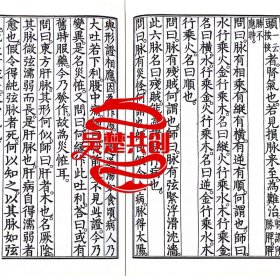 問曰脈有相乘有縱有橫有逆有順何也師曰
水行乘火金行乘木名曰縱火行乘水木行乘金
名曰橫水行乘金火行乘木名曰逆金行乘水木
行乘火名曰順也
問曰脈有殘賊何謂也師曰脈有弦緊浮滑沈濇
此六脈名曰殘賊能為諸脈作病也
問曰脈有災怪何謂也師曰假令人病脈得太陽
與形證相應因為作湯比還送湯如食頃病人乃
大吐若下利腹中痛師曰我前來不見此證今乃
變異是名災怪又問曰何緣作此吐利答曰或有
舊時服藥今乃發作故為災怪耳
問曰東方肝脈其形何似師曰肝者木也名厥陰
其脈微弦濡弱而長是肝脈也肝病自得濡弱者
愈也假令得純弦脈者死何以知之以其脈如弦
吳楚共創